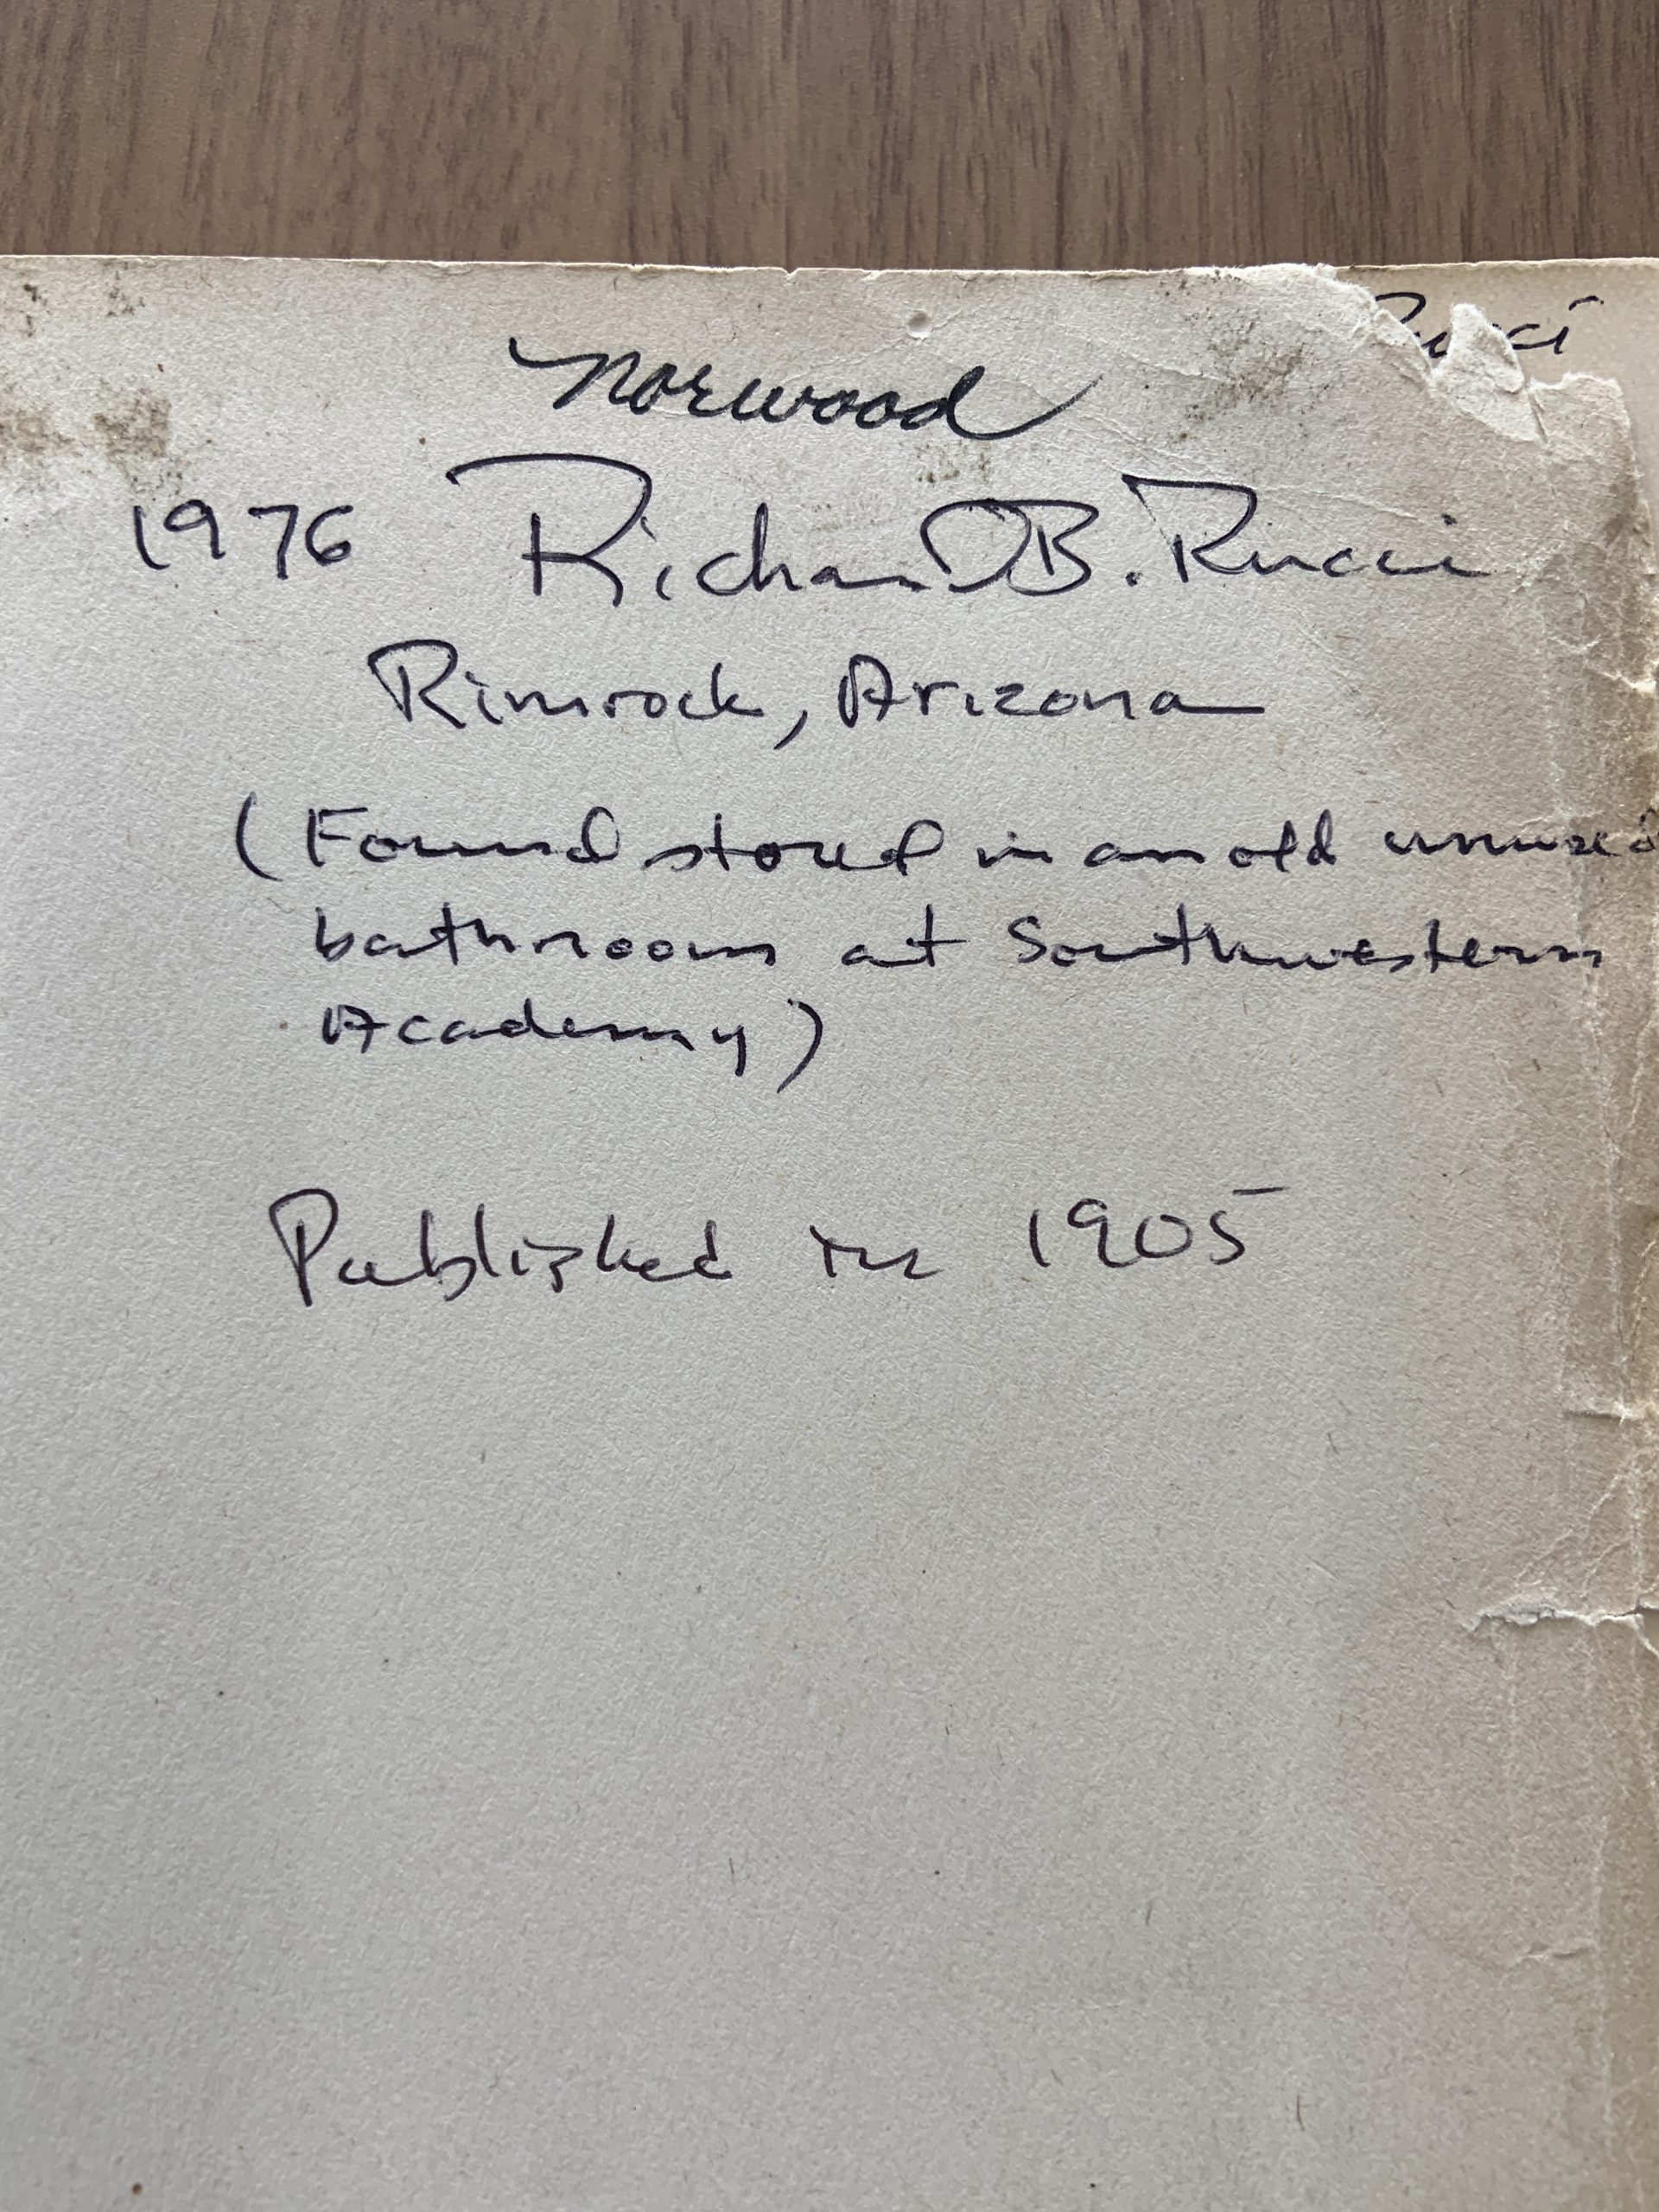 Rucci
Norwood
1976 Richard B. Rucci
Rimrock, Arizona
(Found stored in an old unused
bathroom at Southwestern
Academy)
Published in 1905